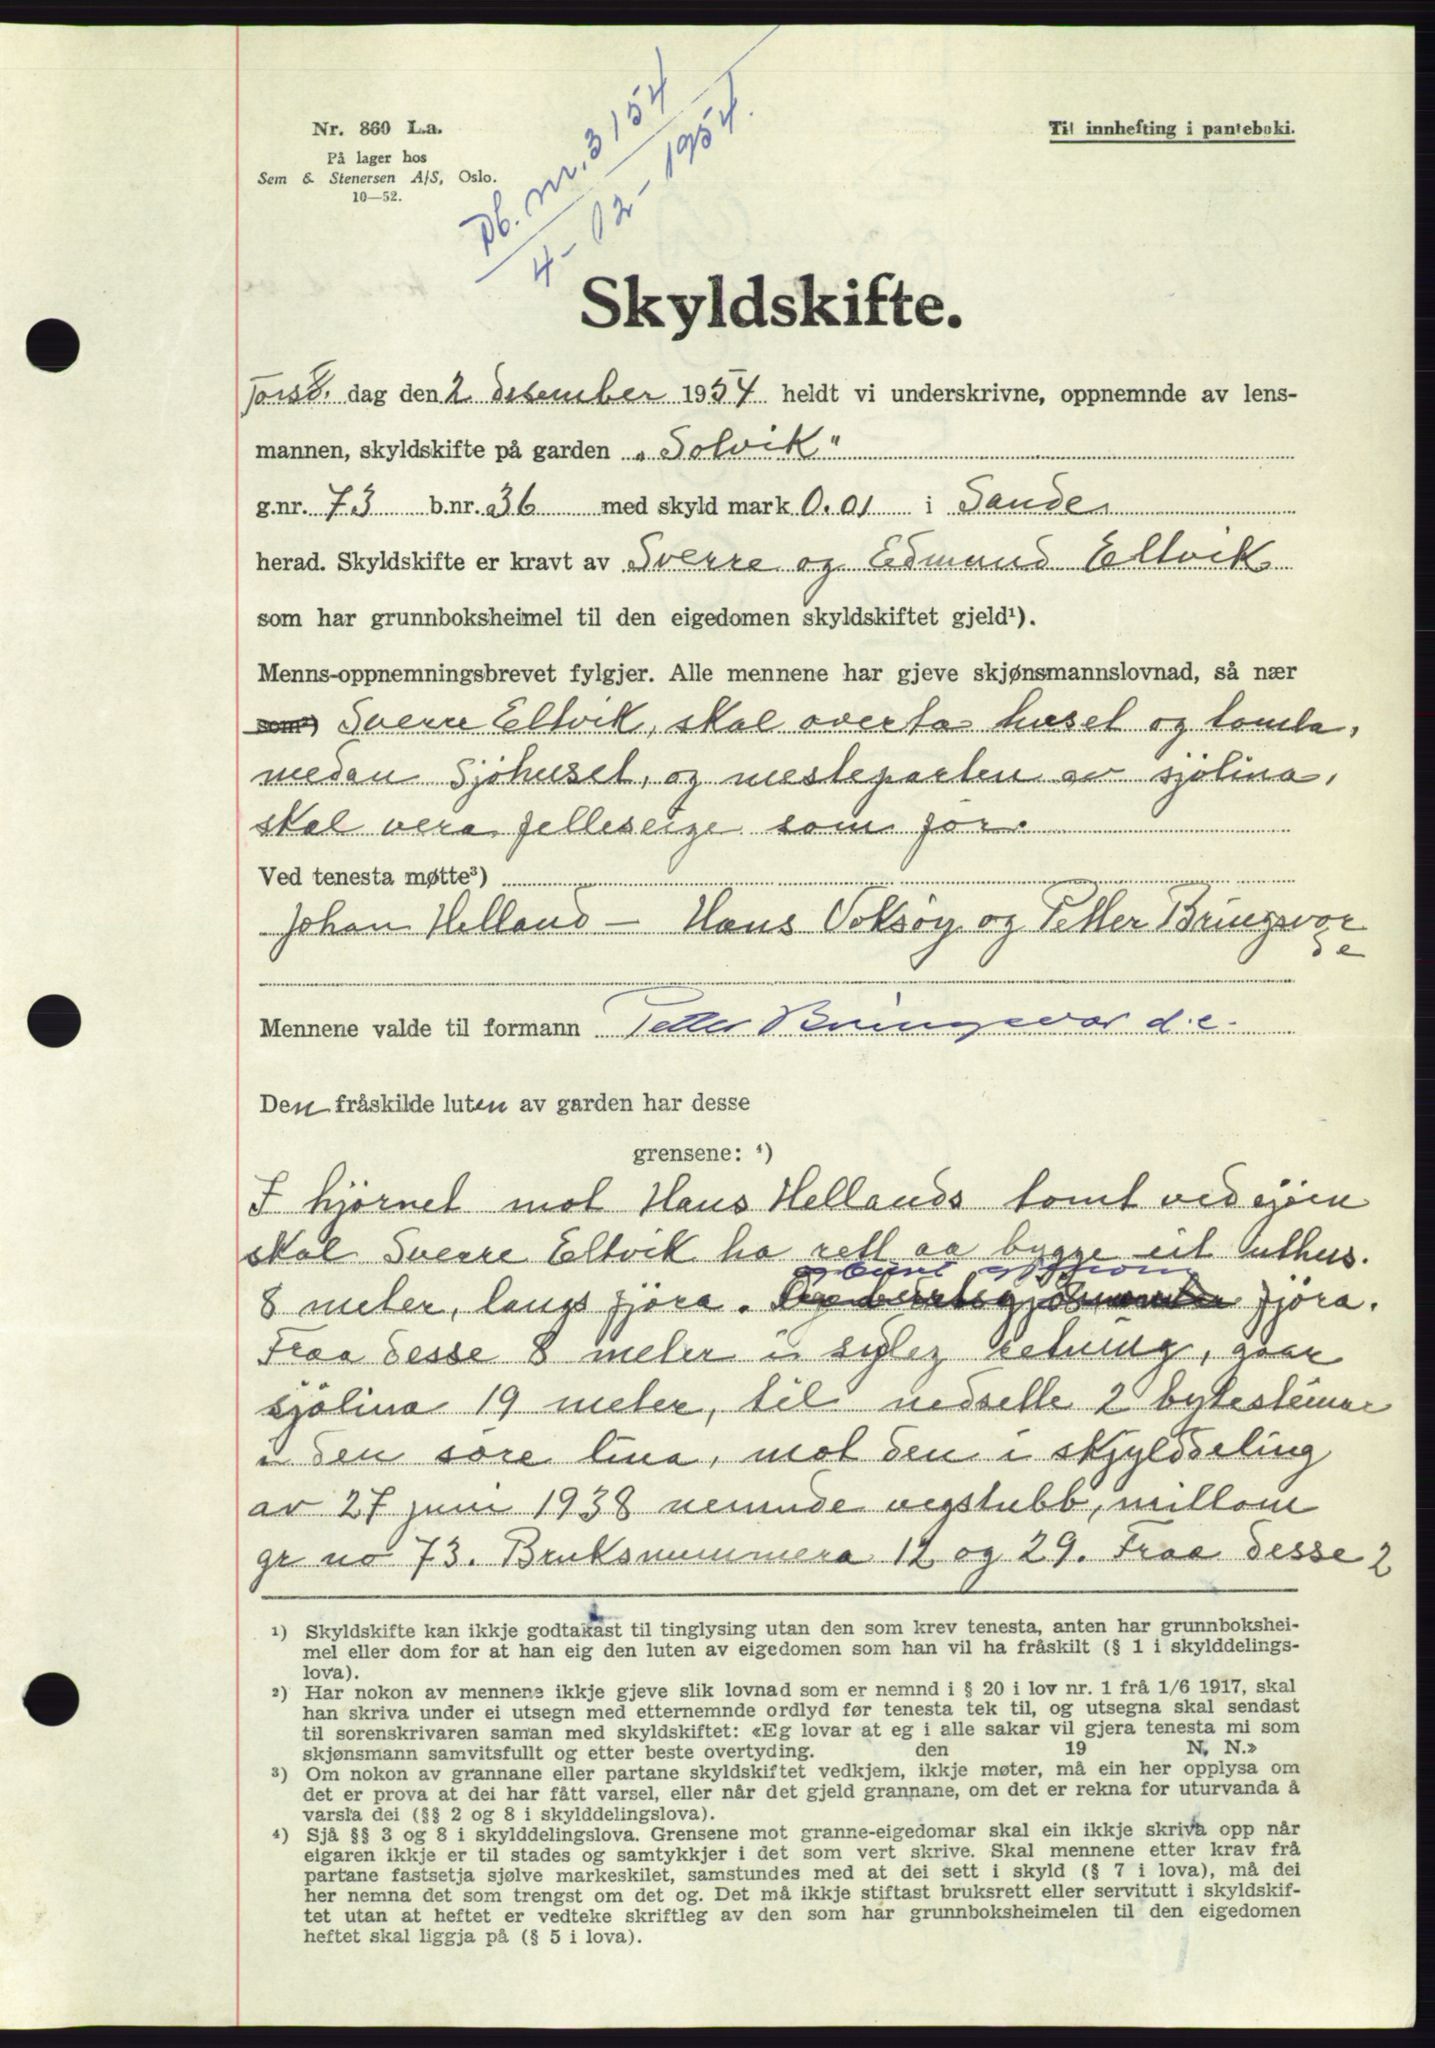 Nr. 860 L.a.
På lager hos
Sem & Stenersen A/S, Oslo.
10—52.
Db. nr. 3154
4-12-1954.
Til innhefting i panteboki.
Skyldskifte.
Torsd. dag den 2 desember 1954 heldt vi underskrivne, oppnemnde av lens-
mannen, skyldskifte på garden „Solvik"
g.nr. 73 b.nr. 36 med skyld mark 0.01 i Sande
herad. Skyldskifte er kravt av Sverre og Edmund Eltvik
som har grunnboksheimel til den eigedomen skyldskiftet gjeld¹).
Menns-oppnemningsbrevet fylgjer. Alle mennene har gjeve skjønsmannslovnad, så nær
som²) Sverre Eltvik, skal overta huset og tomta,
medan sjöhuset, og mesteparten av sjölina,
skal vera felleseige som för.
Ved tenesta møtte³)
Johan Helland — Hans Voksöy og Petter Bringsvor
d e
Mennene valde til formann Petter Bringsvor d.e.
Den fråskilde luten av garden har desse
grensene: ⁴)
I hjörnet mot Hans Hellands tomt ved sjöen
skal Sverre Eltvik ha rett aa bygge eit uthus.
8 meter, langs fjöra. fjöra.
Fraa desse 8 meter i sydleg retning, gaar
sjölina 19 meter, til nedsette 2 bytesteinar
i den söre lina, mot den i skjylddeling
av 27 juni 1938 nemnde vegstubb, millom
gr no 73. Bruksnummera 12 og 29. Fraa desse 2
¹) Skyldskifte kan ikkje godtakast til tinglysing utan den som krev tenesta, anten har grunnbokshei-
mel eller dom for at han eig den luten av eigedomen som han vil ha fråskilt (§ 1 i skylddelings-
lova).
²) Har nokon av mennene ikkje gjeve slik lovnad som er nemnd i § 20 i lov nr. 1 frå 1/6 1917, skal
han skriva under ei utsegn med etternemnde ordlyd før tenesta tek til, og utsegna skal sendast
til sorenskrivaren saman med skyldskiftet: «Eg lovar at eg i alle sakar vil gjera tenesta mi som
skjønsmann samvitsfullt og etter beste overtyding. den 19 N. N.»
³) Om nokon av grannane eller partane skyldskiftet vedkjem, ikkje møter, må ein her opplysa om
det er prova at dei har fått varsel, eller når det gjeld grannane, om det er rekna for uturvanda å
varsla dei (§§ 2 og 8 i skylddelingslova).
⁴) Sjå §§ 3 og 8 i skylddelingslova. Grensene mot granne-eigedomar skal ein ikkje skriva opp når
eigaren ikkje er til stades og samtykkjer i det som vert skrive. Skal mennene etter krav frå
partane fastsetja sjølve markeskilet, samstundes med at dei sett i skyld (§ 7 i lova), må dei
her nemna det som trengst om det og. Det må ikkje stiftast bruksrett eller servitutt i skyldskif-
tet utan at heftet er vedteke skriftleg av den som har grunnboksheimelen til den eigedomen
heftet skal liggja på (§ 5 i lova).